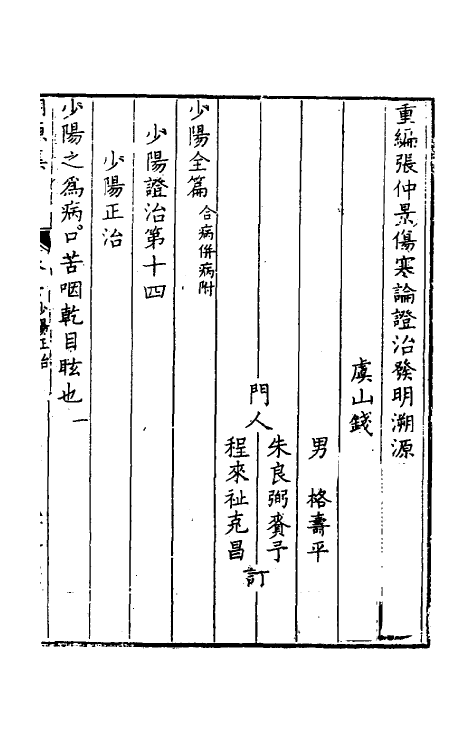 重編張仲景傷寒論證治發明溯源
虞山錢
男　格壽平
門人
朱良弼賚予
程來祉克昌
訂
少陽全篇合病併病附
少陽證治第十四
少陽正治
少陽之爲病。口苦咽乾目眩也
少陽正治